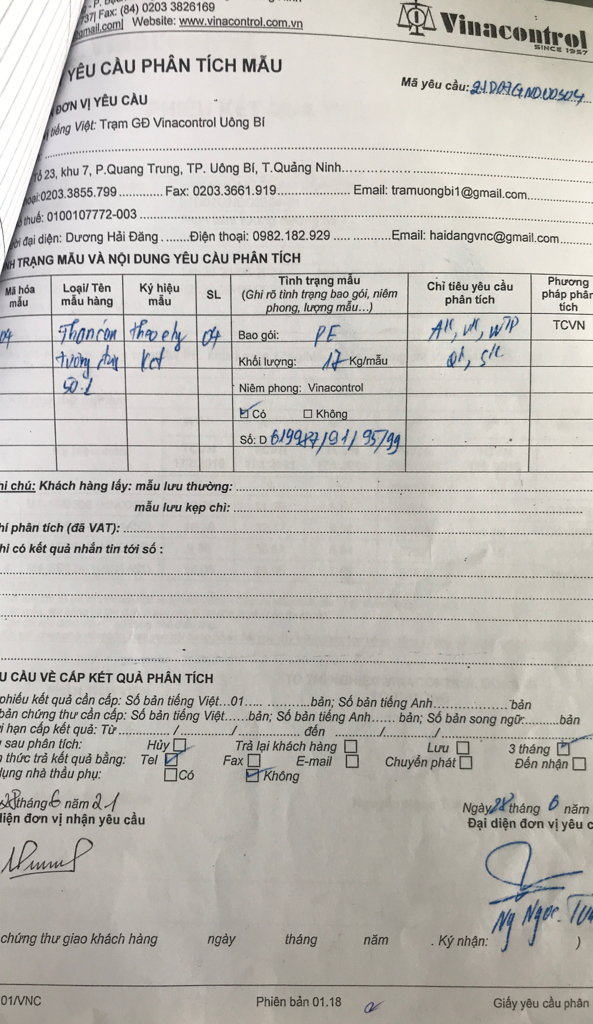 737| Fax: (84) 0203 3826169
gmail.com| Website: www.vinacontrol.com.vn
Vinacontrol
SINCE 1957
YÊU CẦU PHÂN TÍCH MẪU
Mã yêu cầu:
ĐƠN VỊ YÊU CẦU
tiếng Việt: Trạm GĐ Vinacontrol Uông Bí
Tổ 23, khu 7, P.Quang Trung, TP. Uông Bí, T.Quảng Ninh
0203.3855.799 Fax: 0203.3661.919 Email: tramuongbi1@gmail.com
thuế: 0100107772-003
đại diện: Dương Hải Đăng Điện thoại: 0982.182.929 Email: haidangvnc@gmail.com
TRẠNG MẪU VÀ NỘI DUNG YÊU CẦU PHÂN TÍCH
Mã hóa mẫu
Loại/ Tên mẫu hàng
Ký hiệu mẫu
SL
Tình trạng mẫu
(Ghi rõ tình trạng bao gói, niêm
phong, lượng mẫu...)
Chỉ tiêu yêu cầu
phân tích
Phương
pháp phân
tích
04 04 Bao gói: PE TCVN
Khối lượng: 17 Kg/mẫu
Niêm phong: Vinacontrol
☑ Có ☐ Không
Số: D
chú: Khách hàng lấy: mẫu lưu thường:
mẫu lưu kẹp chì:
phí phân tích (đã VAT):
có kết quả nhắn tin tới số :
CẦU VỀ CẤP KẾT QUẢ PHÂN TÍCH
phiếu kết quả cần cấp: Số bản tiếng Việt...01 bản; Số bản tiếng Anh bản
bản chứng thư cần cấp: Số bản tiếng Việt......bản; Số bản tiếng Anh...... bản; Số bản song ngữ: bản
hạn cấp kết quả: Từ / / đến / /
sau phân tích: Hủy ☐ Trả lại khách hàng ☐ Lưu ☐ 3 tháng ☑
thức trả kết quả bằng: Tel ☑ Fax ☐ E-mail ☐ Chuyển phát ☐ Đến nhận ☐
dụng nhà thầu phụ: ☐ Có ☑ Không
28 tháng 6 năm 21
Ngày 28 tháng 6 năm
diện đơn vị nhận yêu cầu
Đại diện đơn vị yêu
Ng Ngọc
chứng thư giao khách hàng ngày tháng năm . Ký nhận: )
01/VNC Phiên bản 01.18 Giấy yêu cầu phân